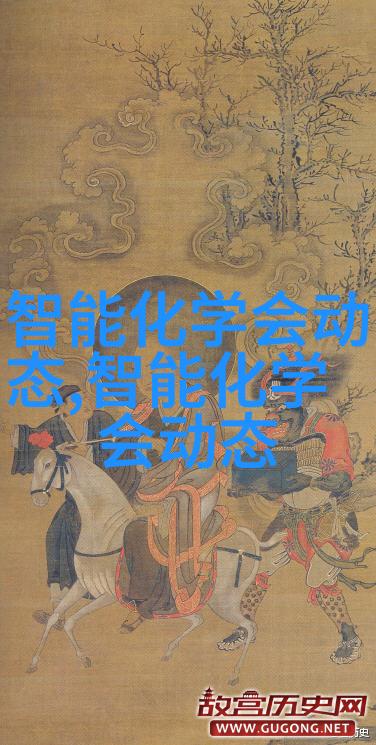 智能化学会动
态,智能化学
会动态
故宫历史网
WWW.GUGONG.NET
历史